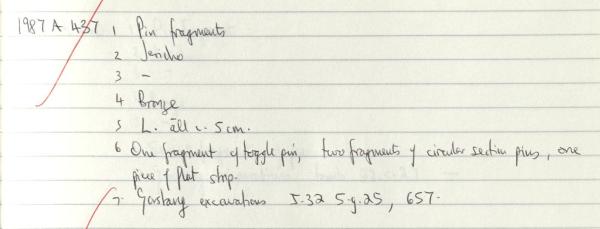 1987 A 437 1 Pin fragments
2 Jericho
3 -
4 Bronze
5 L. all c. 5 cm.
6 One fragment of toggle pin, two fragments of circular section pins, one
piece of flat strip.
7. Garstang excavations J.32 5.g.25, 657.